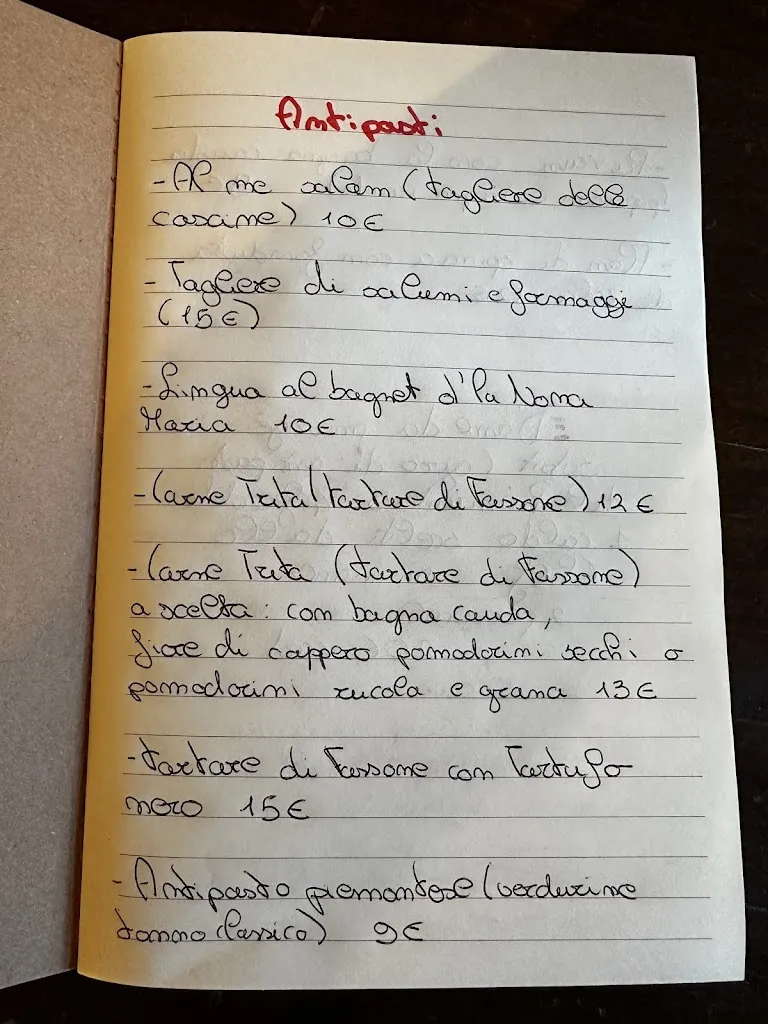 Antipasti
- Al me salam (tagliere delle
cascine) 10€
- Tagliere di salumi e formaggi
(15€)
- Lingua al bagnet d'la Nona
Maria 10€
- Carne Trita (tartare di Fassone) 12€
- Carne Trita (tartare di Fassone)
a scelta: con bagna cauda,
fiore di cappero pomodorini secchi o
pomodorini rucola e grana 13€
- tartare di Fassone con Tartufo
nero 15€
- Antipasto piemontese (verdurine
tonno classico) 9€